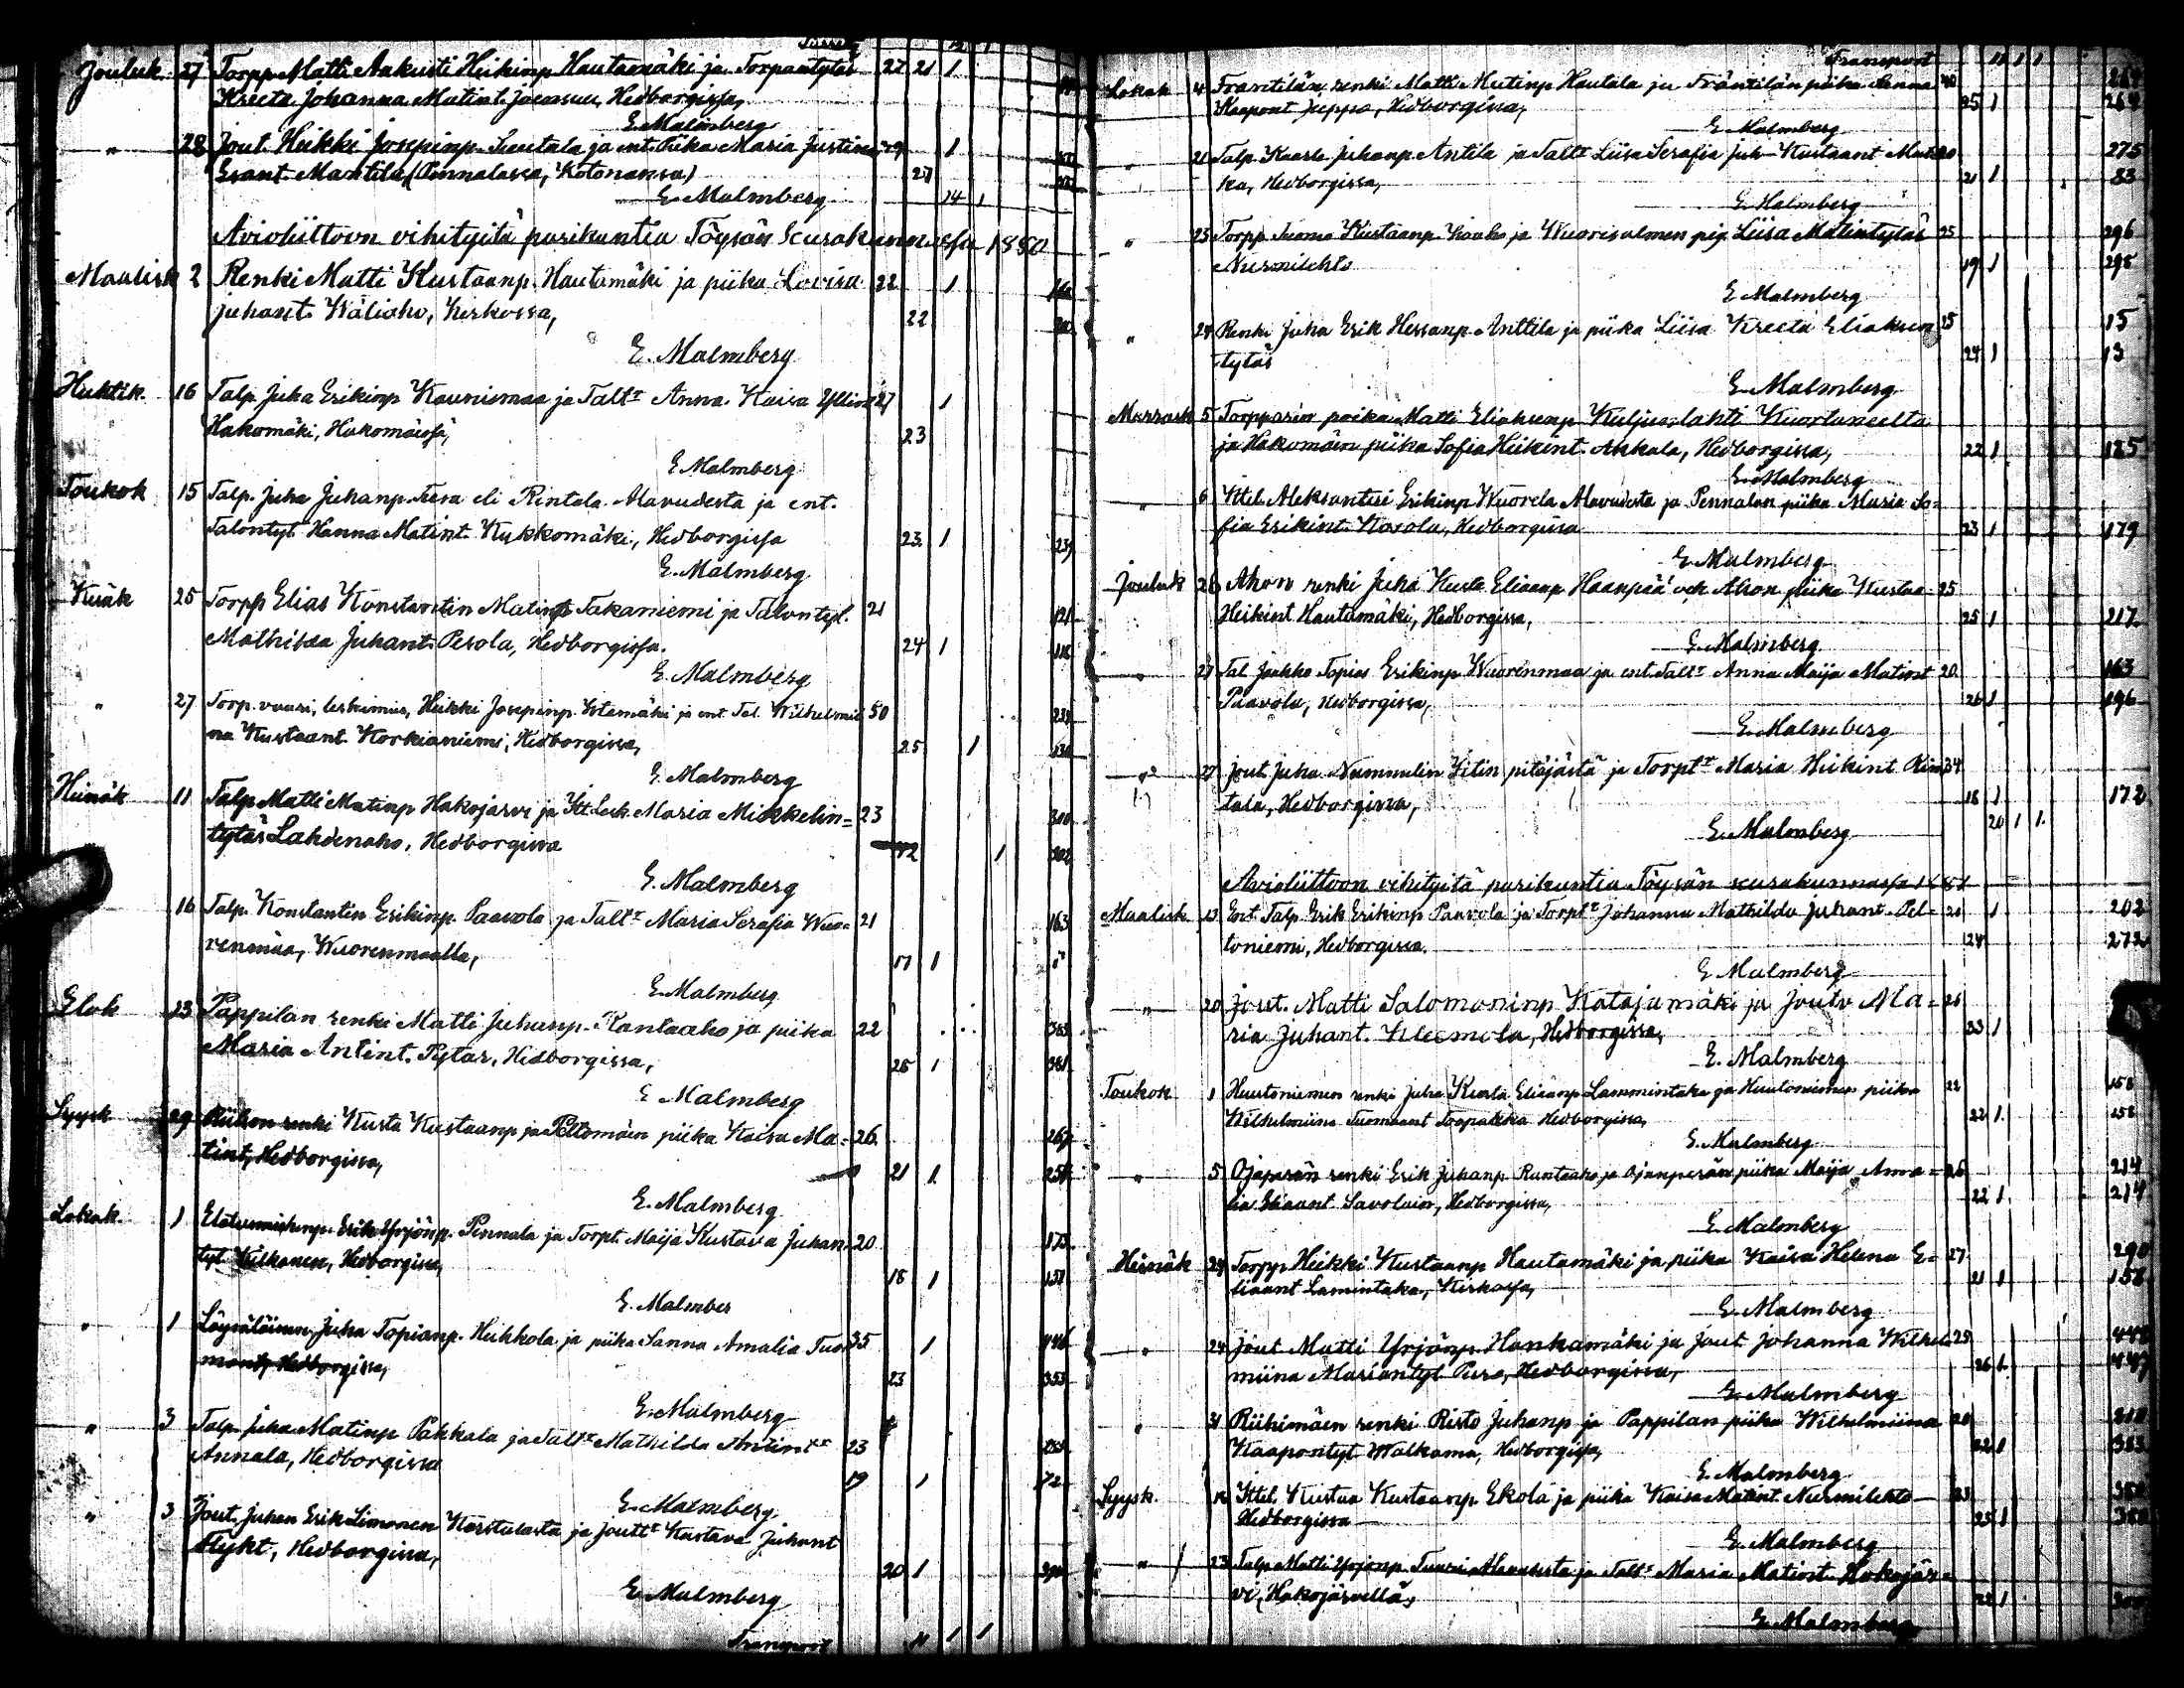 Jouluk. 27 Torpp. Matti Aukusti Heikinp. Hautamäki ja Torpantytär 27 21 1
Kreeta Johanna Matint. Joensuu, Hedborgissa,
E. Malmberg
" 28 Jout. Heikki Josepinp. Suutala ja ent. Piika Maria Justina 29 1
Esant. Mantila, (Pennalassa, Kotonansa)
E. Malmberg 14 1
Avioliittoon vihityitä parikuntia Töysän seurakunnassa 1880
Maalisk 2 Renki Matti Kustaanp. Hautamäki ja piika Lovisa 22 1
Juhant. Wäliaho, Kirkossa, 22
E. Malmberg
Huhtik. 16 Talp. Juha Erikinp Kaunismaa ja Talt.r Anna Kaisa 27 1
Hakomäki, Hakomäessä, 23
E. Malmberg
Toukok 15 Talp. Juha Juhanp. eli Rintala Alavudesta ja ent.
Talontyt. Hanna Matint. Kukkomäki, Hedborgissa 23 1 239
E. Malmberg
Kesäk 25 Torpp Elias Konstantin Matinp Takaniemi ja Talontyt. 21 121
Mathilda Juhant. Perola, Hedborgissa. 24 1 118
E. Malmberg
" 27 Torp. vaari, leskimies, Heikki Josepinp. ja ent. Tal. Wilhelmii 50
na Kustaant. Korkianiemi, Hedborgissa, 25 1
E. Malmberg
Heinäk 11 Talp Matti Matinp Hakojärvi ja Itt. Lesk. Maria Mikkelin= 23 300
tytär Lahdenaho, Hedborgissa 1 302
E. Malmberg
16 Talp. Konstantin Erikinp. Paavola ja Talt.r Maria Serafia Wuo= 21 163
renmaa, Wuorenmaalla, 17 1
E. Malmberg
Elok 23 Pappilan renki Matti Juhanp. Rantaaho ja piika 22 363
Maria Antint. Pytar, Hedborgissa, 25 1 361
E Malmberg
Syysk 29 Riihon renki Kusta Kustaanp ja Peltomäen piika Kaisa Ma= 26 267
tint, Hedborgissa, 21 1 254
E. Malmberg
Lokak. 1 Erik Yrjönp. Pennala ja Torpt. Maija Kustava Juhan 20 175
tyt. Hedborgissa, 18 1
E. Malmber
" 1 Löysäläinen, Juha Topianp. Heikkola ja piika Sanna Amalia Tuo 35 1 446
Hedborgissa, 23 353
E. Malmberg
" 3 Talp. Juha Matinp Pakkala ja Talt.r Mathilda Antint 23
Annala, Hedborgissa 19 1 72
E. Malmberg
" 3 Jout. Juhan Erik Limonen Karstulasta ja Jout.r Kustava Juhant
Flykt, Hedborgissa, 20 1
E. Malmberg
Transport 11 1 1
Transport 11 1 1
Lokak 4 Frantilän renki Matti Matinp Hautala ja Fräntilän piika Sanna 40 264
Kaapont Juppo, Hedborgissa, 25 1 264
E. Malmberg
" 21 Talp. Kaarlo Juhanp. Antila ja Talt.r Liisa Serafia Juh. Kustaant 20 275
Hedborgissa, 21 1 83
E. Malmberg
" 23 Torpp Tuoma Kustaanp. Kaaho ja Wuorisalmen pig. Liisa Matintytär 25 296
Nurmilehto 19 1 298
E. Malmberg
" 24 Renki Juha Erik Hermanp. Anttila ja piika Liisa Kreeta Eliaksen 25 15
tytär 24 1 13
E. Malmberg
Marrask 5 Torpparin poika Matti Eliaksenp Kuljunlahti Kuortaneelta
ja Hakomäen piika Sofia Heikint. Akkala, Hedborgissa, 22 1 125
E. Malmberg
" 6 Ittel. Aleksanteri Erikinp Wuorela Alavudesta ja Pennalan piika Maria So=
fia Erikint. Hedborgissa 23 1 179
E. Malmberg
Jouluk 26 Ahon renki Juha Kusta Eliaanp Haanpää och Ahon piika Kustaa= 25
Heikint Hautamäki, Hedborgissa, 25 1 217
E. Malmberg
" 27 Tal. Jaakko Topias Erikinp Wuorenmaa ja ent. Talt.r Anna Maija Matint 20 163
Paavola, Hedborgissa, 26 1 196
E. Malmberg
" 27 Jout. Juha Nummelin Iitin pitäjästä ja Torpt.r Maria Heikint Rin 34
tala, Hedborgissa, 18 1 172
E. Malmberg 20 1 1
Avioliittoon vihityitä parikuntia Töysän seurakunnassa 1881
Maalisk 13 Ent Talp. Erik Erikinp Paavola ja Torpt.r Johanna Mathilda Juhant. Pel= 21 1 202
toniemi, Hedborgissa. 24 272
E Malmberg
" 20 Jout. Matti Salomoninp Katajamäki ja Joutv Ma= 26
ria Juhant. Kleemola, Hedborgissa, 33 1
E. Malmberg
Toukok 1 Huutoniemen renki Juha Kusta Eliaanp Lammintaka ja Huutoniemen piika 22 158
Wilhelmiina Tuomaant Hedborgissa, 22 1. 158
E. Malmberg
" 5 Ojaperän renki Erik Juhanp. Rantaaho ja Ojanperän piika Maija Ama= 26 214
lia Eliaant Savoluin, Hedborgissa, 22 1 214
E. Malmberg
Heinäk 24 Torpp Heikki Kustaanp Hautamäki ja piika Kaisa Helena E= 27 290
liaant Lamintaka, Kirkossa, 21 1 158
E. Malmberg
" 24 Jout Matti Yrjönp. Hankamäki ja Jout Johanna Wilhel 25 448
miina Mariantyt. Puro, Hedborgissa, 26 1. 447
E. Malmberg
" 31 Riihimäen renki Risto Juhanp ja Pappilan piika Wilhelmiina 20
Kaapontyt Walkama, Hedborgissa, 22 1 363
E. Malmberg
Syysk. Ittel. Kustaa Kustaanp. Ekola ja piika Kaisa Matint. Nurmilehto
Hedborgissa 25 1
E. Malmberg
" 23 Talp. Matti Yrjönp Tuuri Alavudesta ja Talt.r Maria Matint. Hakojär=
vi, Hakojärvellä, 22 1
E. Malmberg